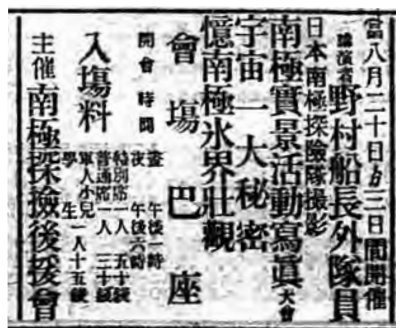 當八月二十日ゟ三日間開催
講演者野村船長外隊員
日本南極探險隊撮影
南極實景活動寫眞大會
宇宙一大秘密
憶南極氷界壯觀
會場巴座
開會時間 晝午後一時
夜午後六時
入塲料 特別席一人五十錢
普通席一人三十錢
軍人小兒
學生一人十五錢
主催南極探險後援會